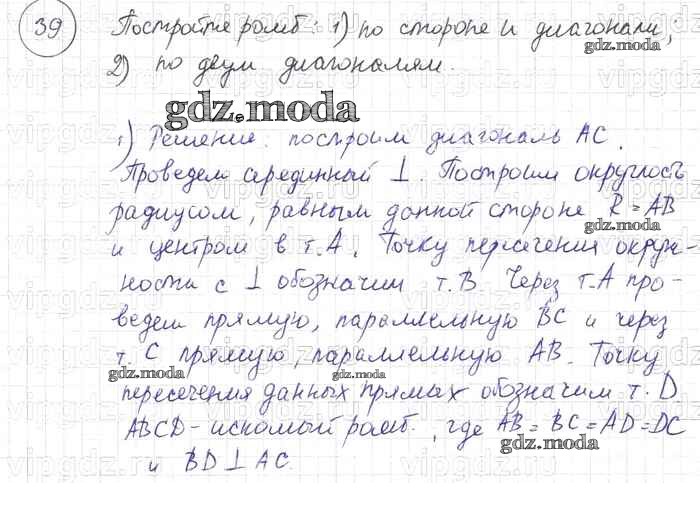 39 Постройте ромб: 1) по стороне и диагонали,
gdz.moda
2) по двум диагоналям.
gdz.moda
1) Решение: построим диагональ AC.
Проведем серединный ⊥. Построим окружность
радиусом, равным данной стороне R = AB
gdz.moda
и центром в т. A. Точку пересечения окруж-
ности с ⊥ обозначим т. B. Через т. A про-
ведем прямую, параллельную BC и через
т. C прямую, параллельную AB. Точку
gdz.moda gdz.moda
пересечения данных прямых обозначим т. D.
ABCD - искомый ромб, где AB = BC = AD = DC
gdz.moda
и BD ⊥ AC.